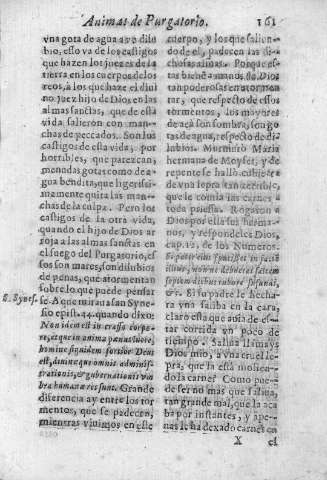 Animas de Purgatorio. 161
vna gota de agua a vn dilu
bio, esso va de los castigos
que hazen los juezes de la
tierra en los cuerpos de los
reos, à los que haze el diui
no juez hijo de Dios en las
almas santas, que de esta
vida salieron con man-
chas de peccados. Son los
castigos de esta vida, por
horribles, que parezcan,
menudas gotas como de a
gua bendita, que ligerissi-
mamente quita las man-
chas de la culpa. Pero los
castigos de la otra vida,
quando el hijo de Dios ar
roja a las almas santas en
el fuego del Purgatorio, es
sos son mares, son dilubios
de penas, que atormentan
sobre lo que puede pensar
S. Synes. se. A que miraua san Syne-
sio epist. 44. quando dixo:
Non idem est in crasso corpo-
re, et que in anima panas luere,
homine siquidem fortior Deus
est, dinque omnis adminis-
trationis, & gubernationis vm
bra humana res sunt. Grande
diferencia ay entre los tor
mentos, que se padecen,
mientras viuimos en este
cuerpo, y los que salien-
do de el, padecen las di-
chosas almas. Porque es-
tas bien à manos de Dios
tan poderosas en atormen
tar, que respecto de essos
tormentos, los mayores
de acà son sombra, son go
tas de agua, respecto de di-
lubios. Murmurò Maria
hermana de Moyses, y de
repente se hallò cubierta
de vna lepra tan terrible,
que le comia las carnes a
toda priessa. Rogaron a
Dios por ella sus herma-
nos, y respondeles Dios,
cap. 12. de los Numeros.
Si pater eius spuisset in faciē
illius, nonne debueret saltem
septem diebus rubore suffundi,
&c. Si su padre le hecha-
ra vna saliba en la cara,
claro esta que auia de es-
tar corrida vn poco de
tiempo. Saliua llamays
Dios mio, a vna cruel le-
pra, que la està molien-
do la carne? Como pue-
de ser no mas que saliua,
tan grande mal, que la aca
ba por instantes, y ape-
nas le ha dexado carnes en
X el